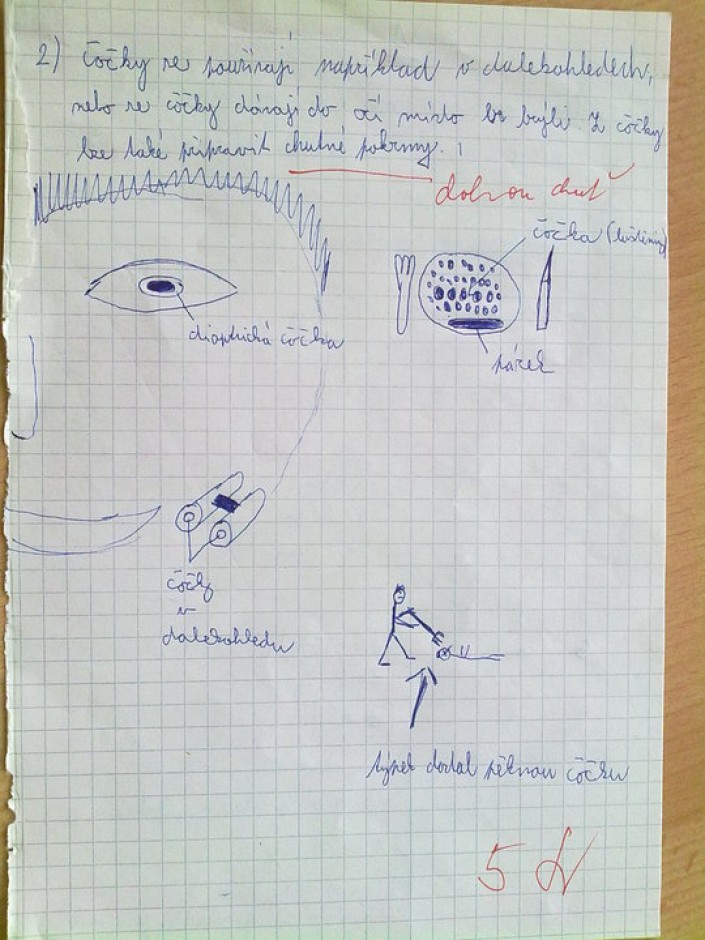 2) Čočky se používají například v dalekohledech,
nebo se čočky dávají do očí místo brýlí. Z čočky
lze také připravit chutné pokrmy.
dobrou chuť
čočka (luštěniny)
dioptrická čočka
párek
čočky
v
dalekohledu
týpek dostal pěknou čočku
5